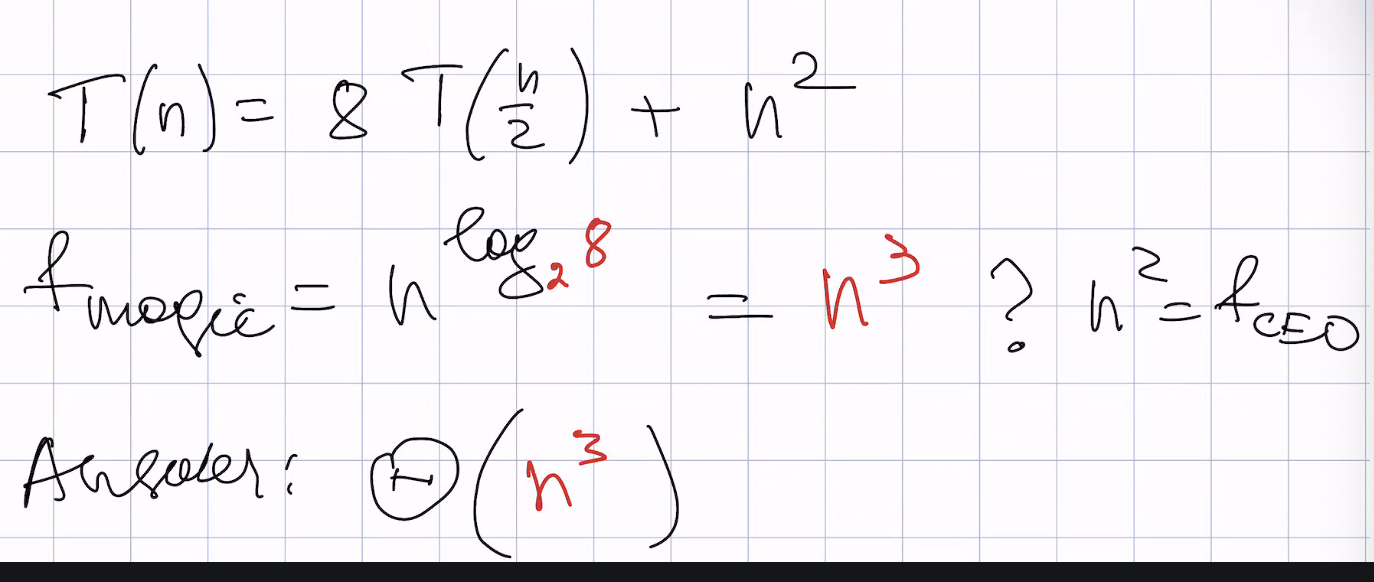 T(n) = 8 T(n/2) + n²
f_magic = n^(log₂ 8) = n³ ? n² = f_CEO
Answer: Θ(n³)